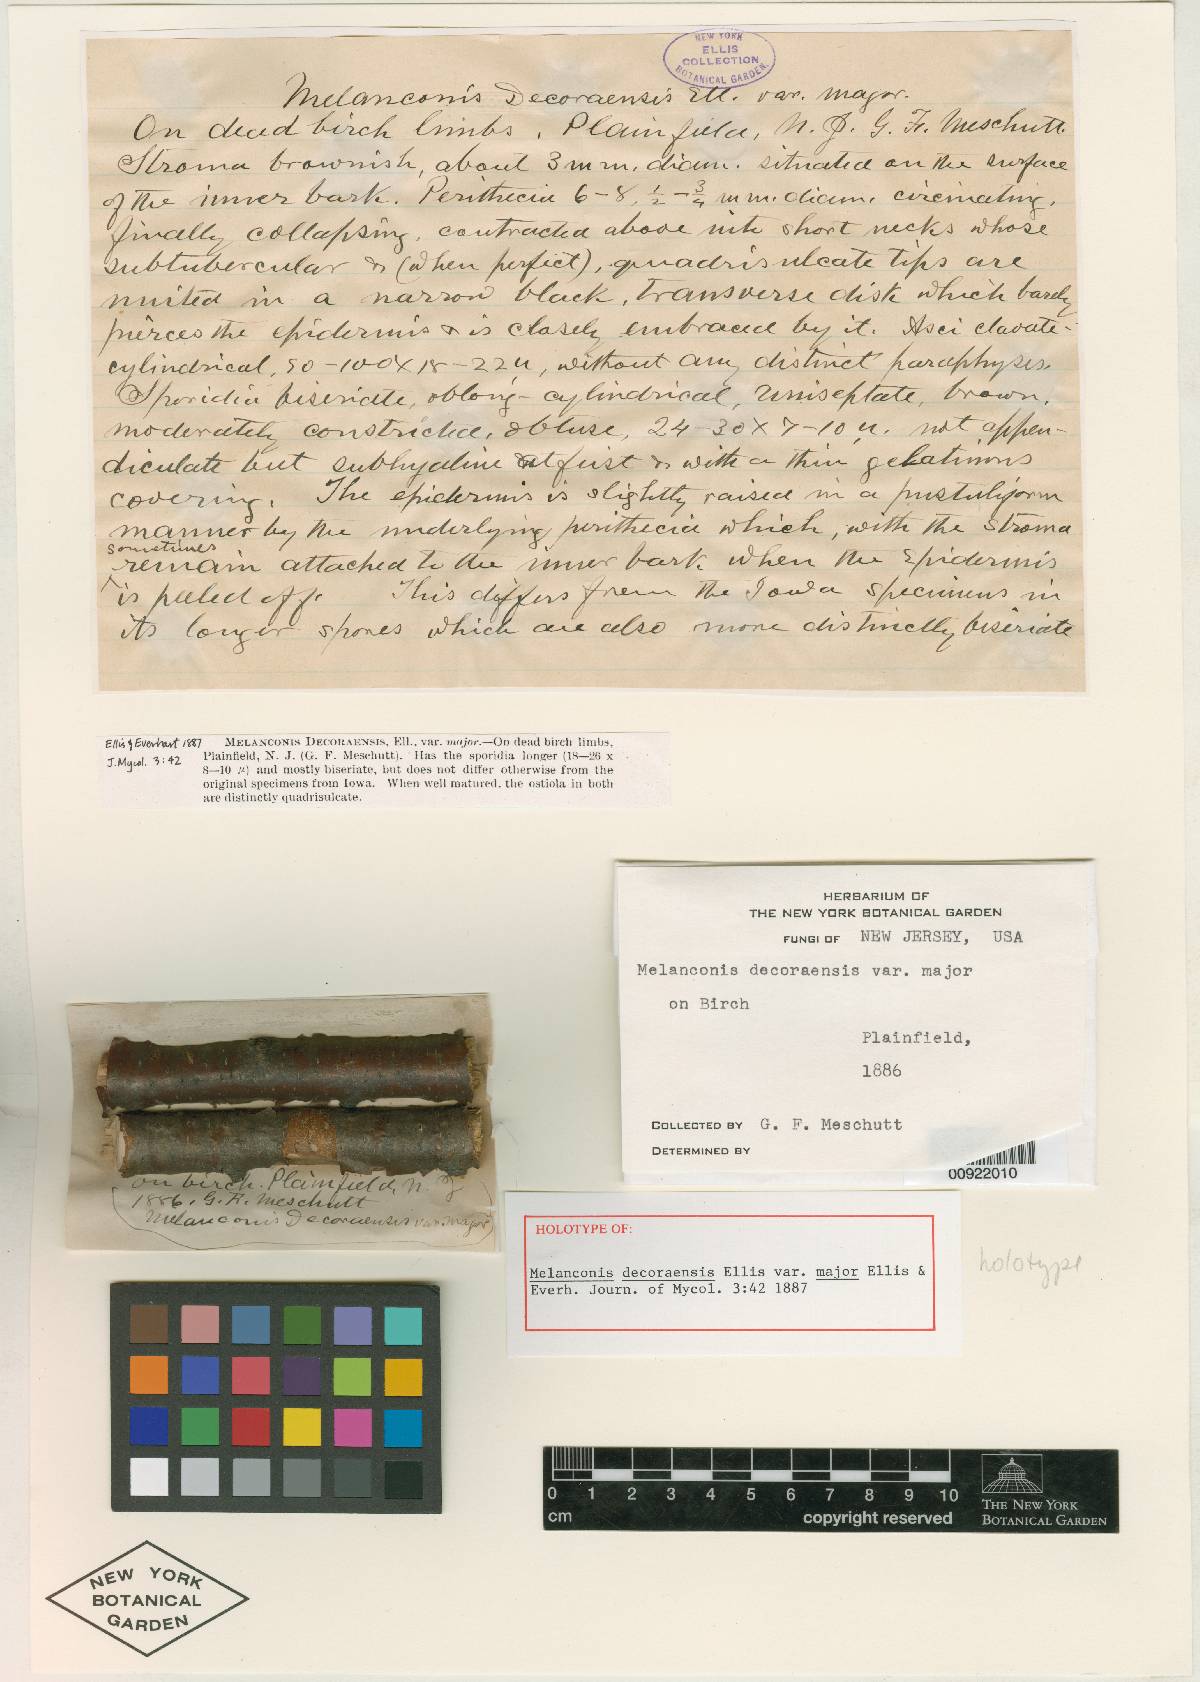 NEW YORK
ELLIS
COLLECTION
BOTANICAL GARDEN.
Melanconis Decoraensis Ell. var. major.
On dead birch limbs, Plainfield, N. J. G. F. Meschutt.
Stroma brownish, about 3 mm. diam. situated on the surface
of the inner bark. Perithecia 6-8, 1/2-3/4 mm. diam. circinating,
finally collapsing, contracted above into short necks whose
subtubercular & (when perfect), quadrisulcate tips are
united in a narrow black, transverse disk which barely
pierces the epidermis & is closely embraced by it. Asci clavate-
cylindrical, 90-100 x 18-22 u, without any distinct paraphyses.
Sporidia biseriate, oblong-cylindrical, uniseptate, brown,
moderately constricted, obtuse, 24-30 x 7-10 u. not appen-
diculate but subhyaline at first & with a thin gelatinous
covering. The epidermis is slightly raised in a pustuliform
manner by the underlying perithecia which, with the stroma
sometimes
remain attached to the inner bark when the epidermis
is peeled off. This differs from the Iowa specimens in
its longer spores which are also more distinctly biseriate
Ellis & Everhart 1887
J. Mycol. 3:42
MELANCONIS DECORAENSIS, Ell., var. major.—On dead birch limbs,
Plainfield, N. J. (G. F. Meschutt). Has the sporidia longer (18—26 x
8—10 µ) and mostly biseriate, but does not differ otherwise from the
original specimens from Iowa. When well matured, the ostiola in both
are distinctly quadrisulcate.
HERBARIUM OF
THE NEW YORK BOTANICAL GARDEN
FUNGI OF NEW JERSEY, USA
Melanconis decoraensis var. major
on Birch
Plainfield,
1886
COLLECTED BY G. F. Meschutt
DETERMINED BY
00922010
on birch. Plainfield, N. J
1886. G. F. Meschutt
Melanconis Decoraensis var. major)
HOLOTYPE OF:
Melanconis decoraensis Ellis var. major Ellis &
Everh. Journ. of Mycol. 3:42 1887
holotype
0 1 2 3 4 5 6 7 8 9 10
cm
copyright reserved
THE NEW YORK
BOTANICAL GARDEN
NEW YORK
BOTANICAL
GARDEN